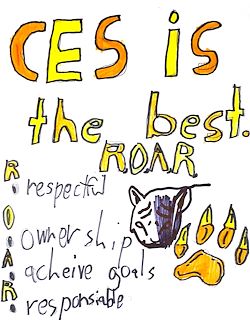 CES is
the best.
ROAR
R. respectful
O. ownership
A. acheive goals
R. responsiable